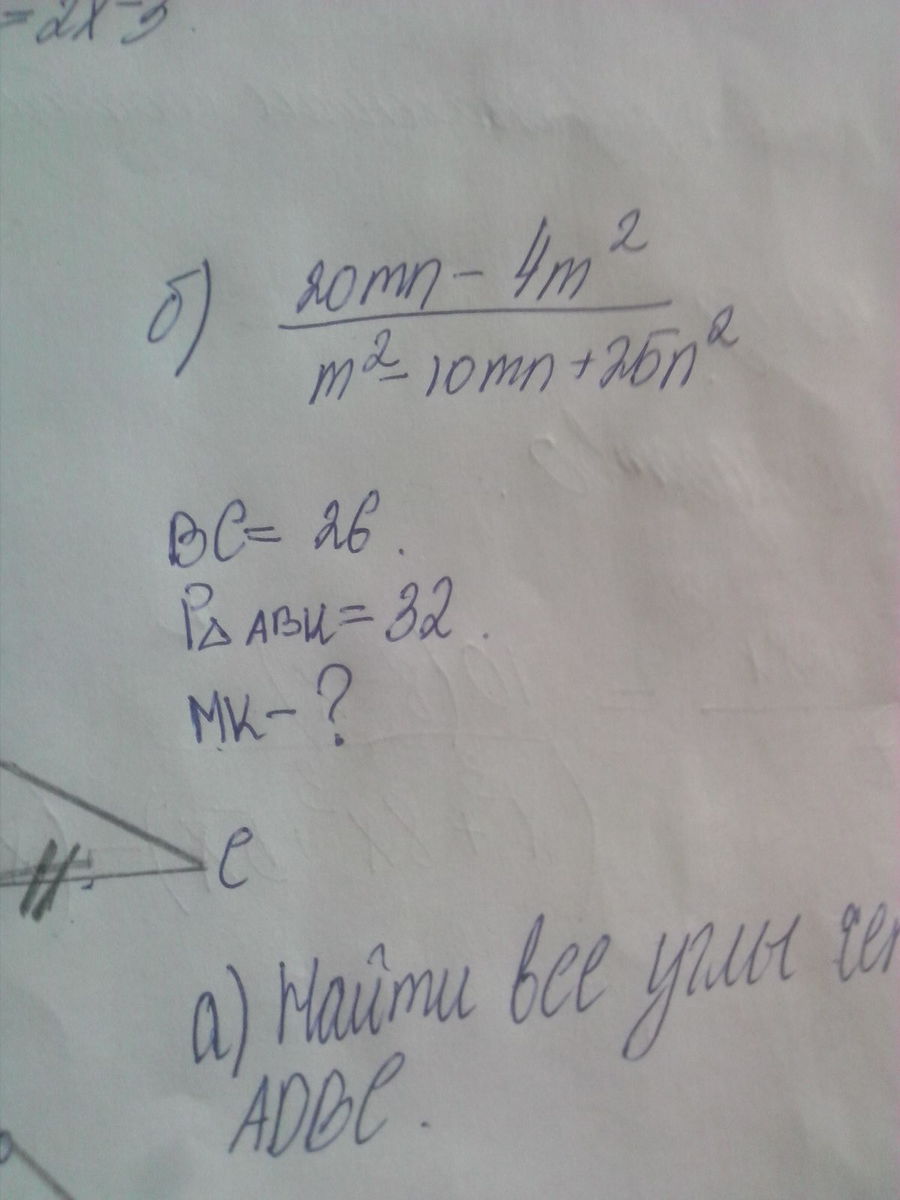 = 2x-3
б) 20mn - 4m²
m² - 10mn + 25n²
BC = 26.
P△ ABK = 32.
MK - ?
C
а) Найти все углы
ADBC.